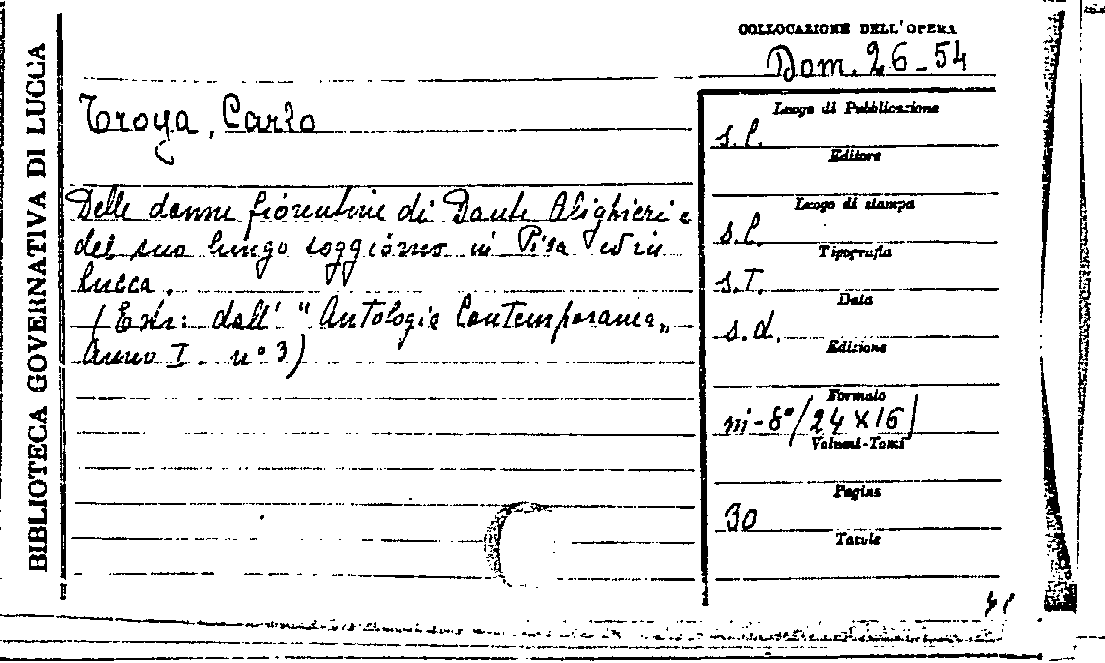 BIBLIOTECA GOVERNATIVA DI LUCCA
COLLOCAZIONE DELL'OPERA
Dom. 26-54
Troya, Carlo
Delle donne fiorentine di Dante Alighieri e
del suo lungo soggiorno in Pisa ed in
Lucca.
(Estr: dall' "Antologia Contemporanea„
Anno I. n° 3)
Luogo di Pubblicazione
s.l.
Editore
Luogo di stampa
s.l.
Tipografia
s.T.
Data
s.d.
Edizione
Formato
in-8°(24x16)
Volumi-Tomi
Pagine
30
Tavole